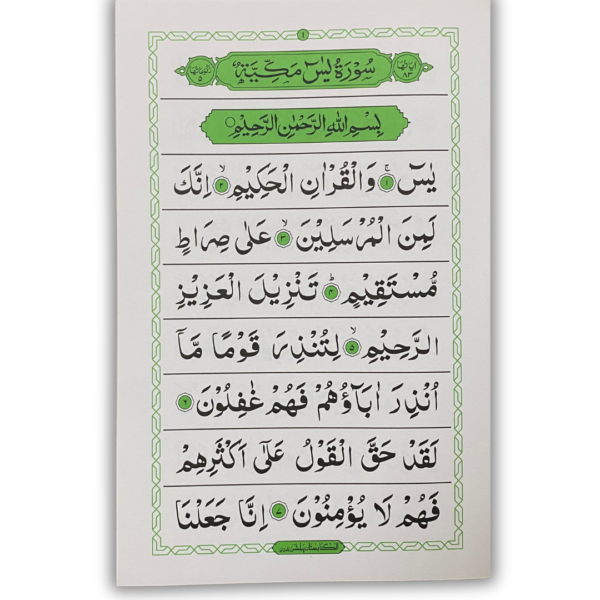 ٤
اٰیَاتُهَا ٨٣ سُوْرَةُ یٰسٓ مَكِّیَّةٌ رُكُوْعَاتُهَا ٥
بِسْمِ اللهِ الرَّحْمٰنِ الرَّحِیْمِ
یٰسٓ ۚ ١ وَالْقُرْاٰنِ الْحَكِیْمِ ۙ ٢ اِنَّكَ
لَمِنَ الْمُرْسَلِیْنَ ۙ ٣ عَلٰی صِرَاطٍ
مُّسْتَقِیْمٍ ؕ ٤ تَنْزِیْلَ الْعَزِیْزِ
الرَّحِیْمِ ۙ ٥ لِتُنْذِرَ قَوْمًا مَّاۤ
اُنْذِرَ اٰبَآؤُهُمْ فَهُمْ غٰفِلُوْنَ ٦
لَقَدْ حَقَّ الْقَوْلُ عَلٰۤی اَكْثَرِهِمْ
فَهُمْ لَا یُؤْمِنُوْنَ ٧ اِنَّا جَعَلْنَا